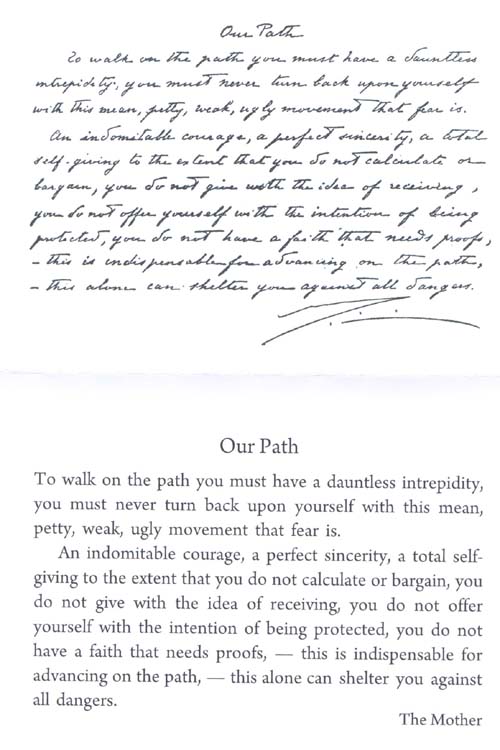 Our Path
To walk on the path you must have a dauntless
intrepidity, you must never turn back upon yourself
with this mean, petty, weak, ugly movement that fear is.
An indomitable courage, a perfect sincerity, a total
self-giving to the extent that you do not calculate or
bargain, you do not give with the idea of receiving,
you do not offer yourself with the intention of being
protected, you do not have a faith that needs proofs,
- this is indispensable for advancing on the path,
- this alone can shelter you against all dangers.
Our Path
To walk on the path you must have a dauntless intrepidity,
you must never turn back upon yourself with this mean,
petty, weak, ugly movement that fear is.
An indomitable courage, a perfect sincerity, a total self-
giving to the extent that you do not calculate or bargain, you
do not give with the idea of receiving, you do not offer
yourself with the intention of being protected, you do not
have a faith that needs proofs, — this is indispensable for
advancing on the path, — this alone can shelter you against
all dangers.
The Mother